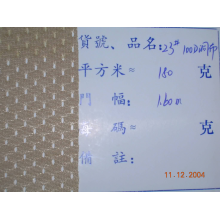 貨號、品名:23# 100D網布
平方米≈ 180 克
門 幅: 1.60m
碼≈ 克
備 註:
11.12.2004